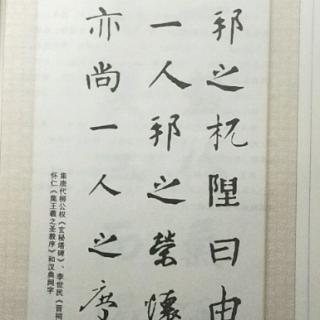 邦之杌陧曰由
一人邦之荣懷
亦尚一人之庆
集唐代柳公权《玄秘塔碑》、李世民《晋祠
怀仁《集王羲之圣教序》和汉典网字